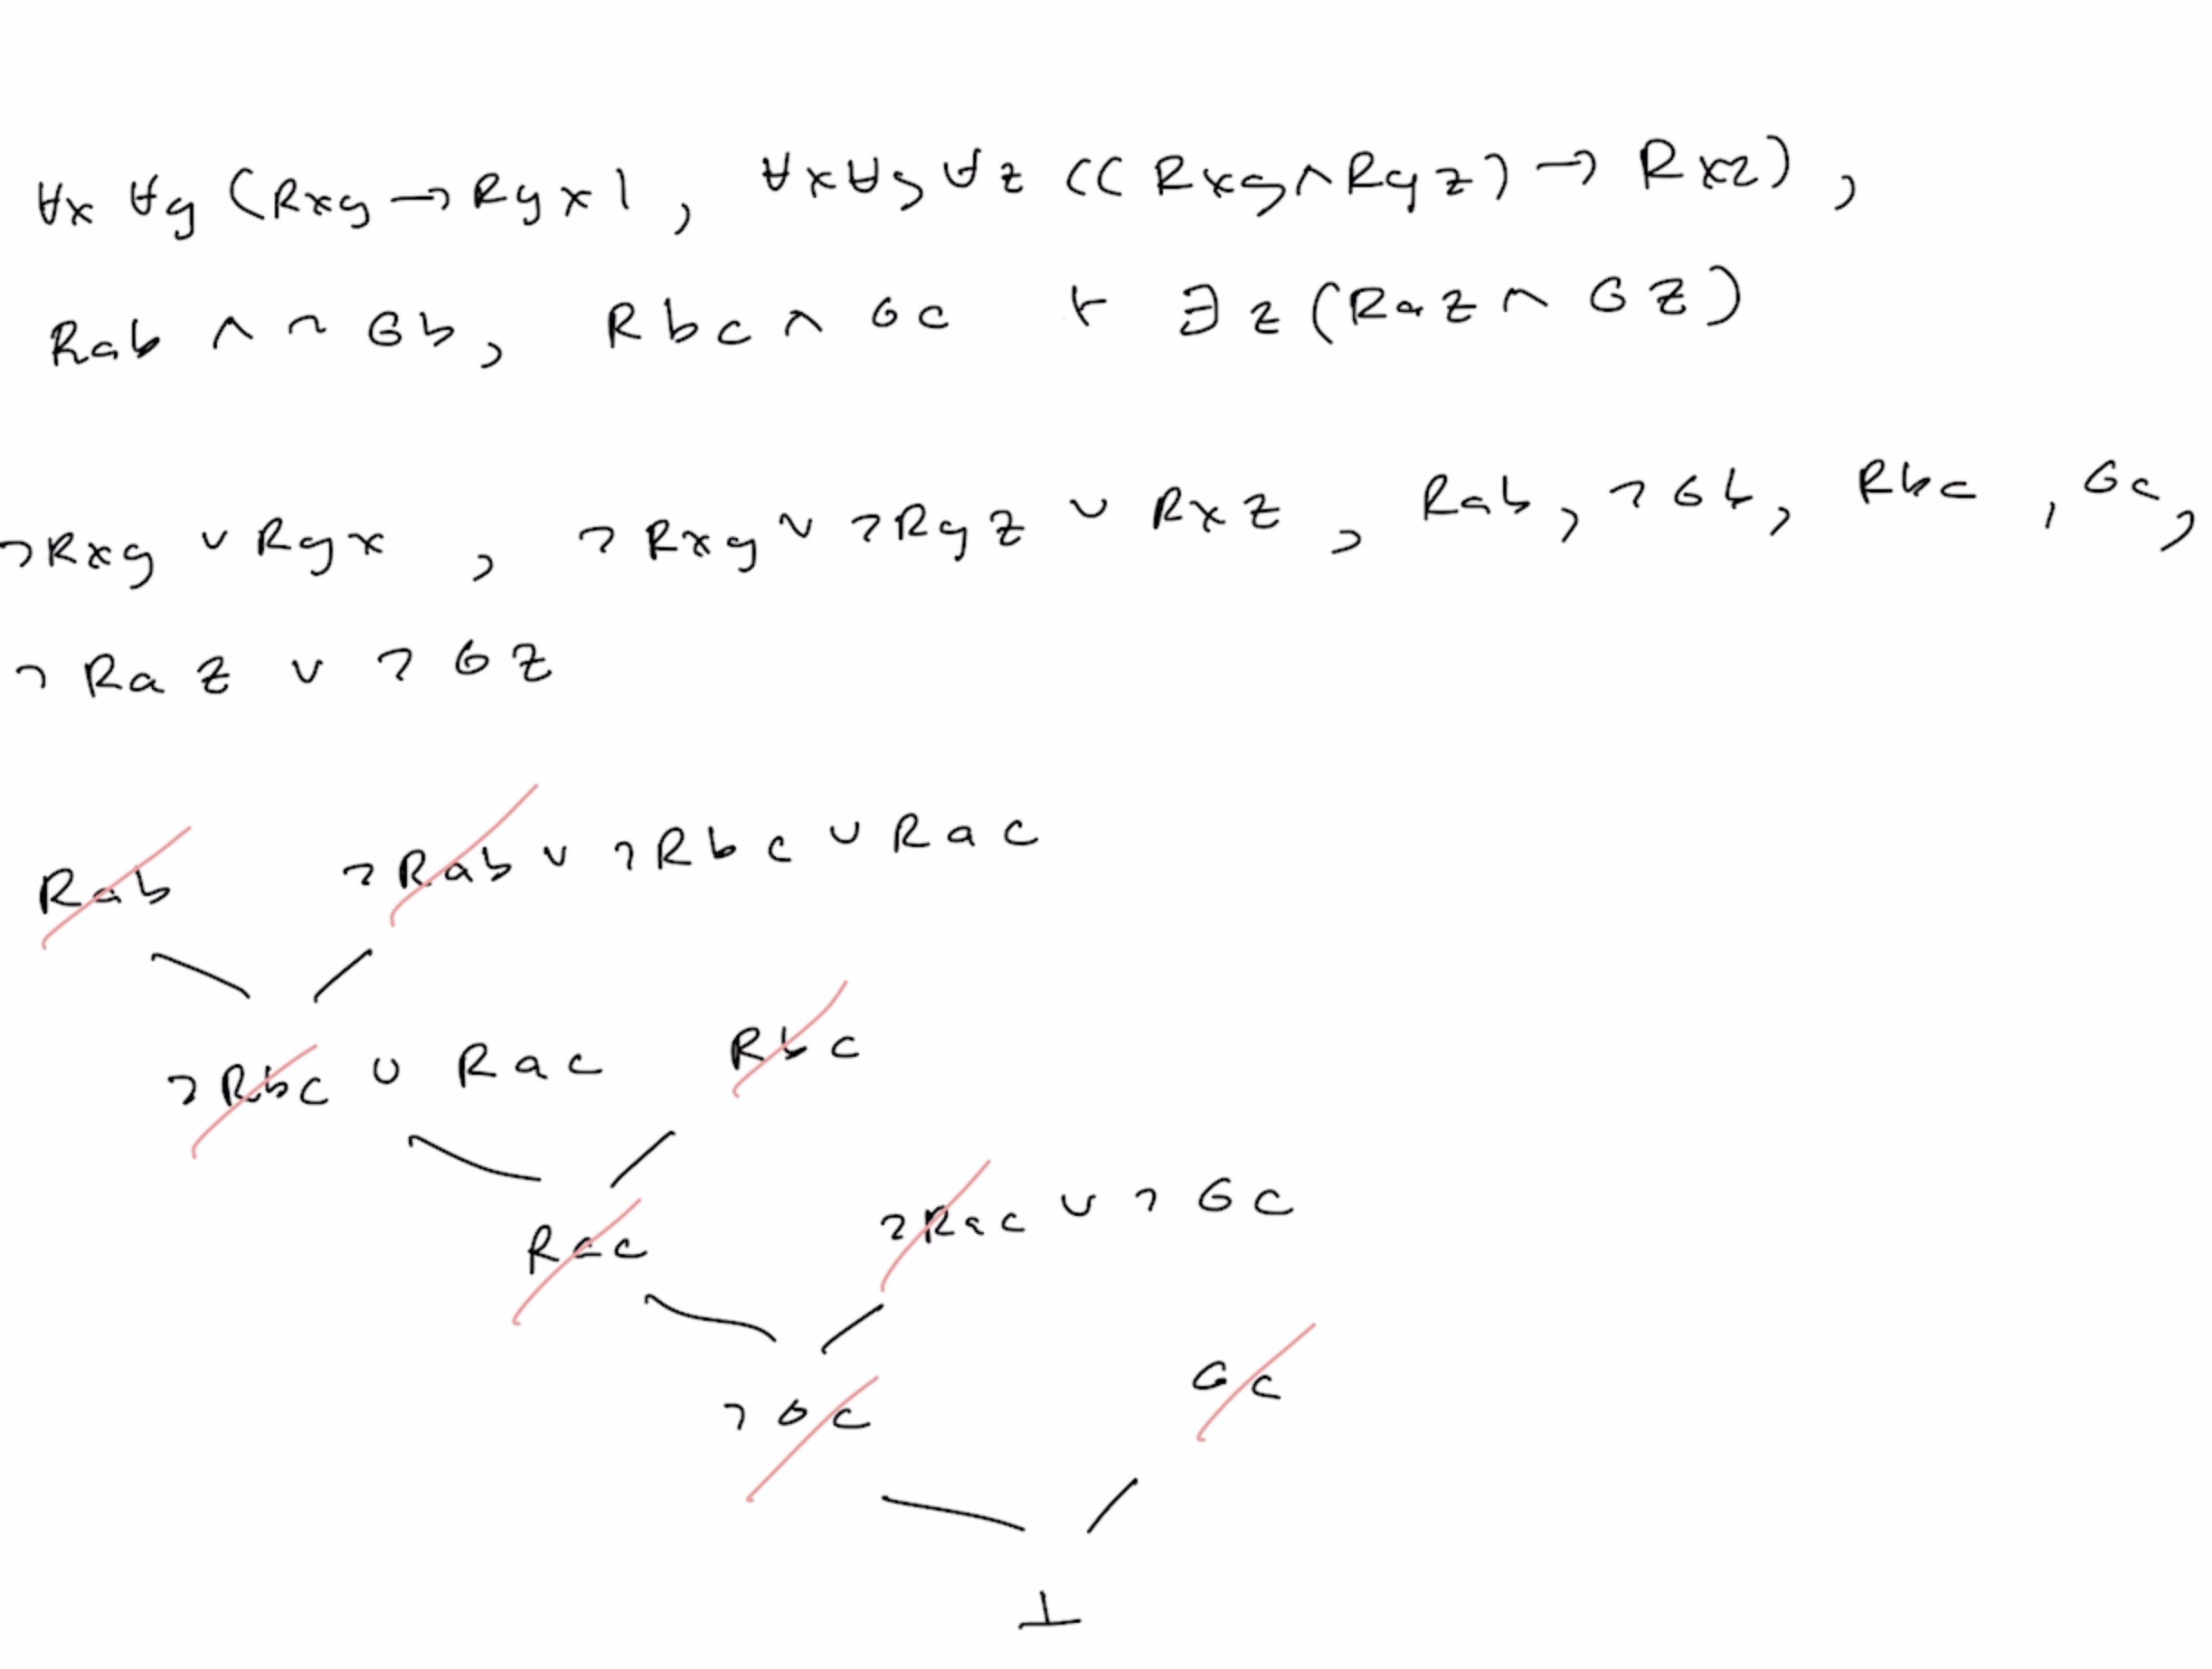 ∀x ∀y (Rxy → Ryx), ∀x∀y∀z ((Rxy ∧ Ryz) → Rxz),
Rab ∧ ¬Gb, Rbc ∧ Gc ⊢ ∃z(Raz ∧ Gz)
¬Rxy ∨ Ryx, ¬Rxy ∨ ¬Ryz ∨ Rxz, Rab, ¬Gb, Rbc, Gc,
¬Raz ∨ ¬Gz
Rab ¬Rab ∨ ¬Rbc ∨ Rac
¬Rbc ∨ Rac Rbc
Rac ¬Rac ∨ ¬Gc
¬Gc Gc
⊥